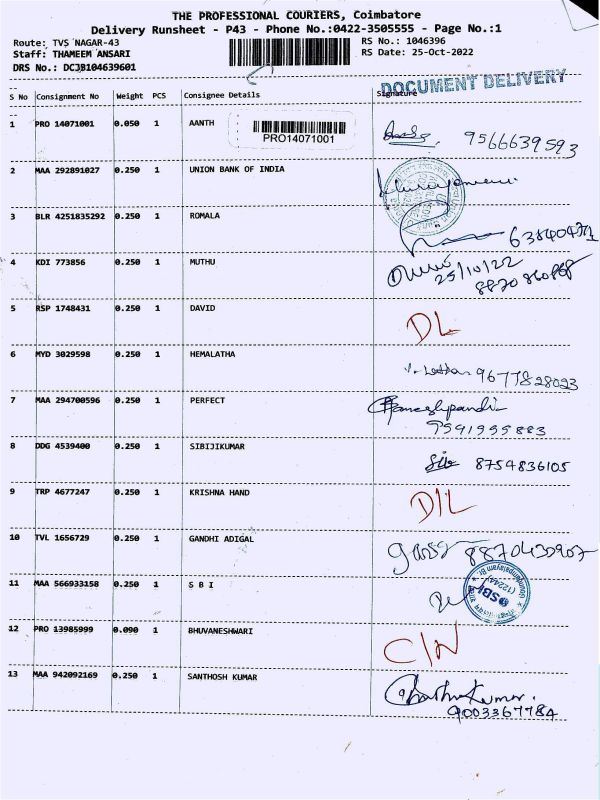 THE PROFESSIONAL COURIERS, Coimbatore
Delivery Runsheet - P43 - Phone No.:0422-3505555 - Page No.:1
Route: TVS NAGAR-43 RS No.: 1046396
Staff: THAMEEM ANSARI RS Date: 25-Oct-2022
DRS No.: DCJB104639601
DOCUMENT DELIVERY
S No Consignment No Weight PCS Consignee Details Signature
1 PRO 14071001 0.050 1 AANTH PRO14071001 9566639593
2 MAA 292891027 0.250 1 UNION BANK OF INDIA
3 BLR 4251835292 0.250 1 ROMALA
4 KDI 773856 0.250 1 MUTHU 25/10/22
5 RSP 1748431 0.250 1 DAVID DL
6 MYD 3029598 0.250 1 HEMALATHA 9677828023
7 MAA 294700596 0.250 1 PERFECT
9591955883
8 DDG 4539400 0.250 1 SIBIJIKUMAR Sib 8754836105
9 TRP 4677247 0.250 1 KRISHNA HAND D/L
10 TVL 1656729 0.250 1 GANDHI ADIGAL 8870430907
11 MAA 566933158 0.250 1 S B I SBI
12 PRO 13985999 0.090 1 BHUVANESHWARI C/N
13 MAA 942092169 0.250 1 SANTHOSH KUMAR
9003367784